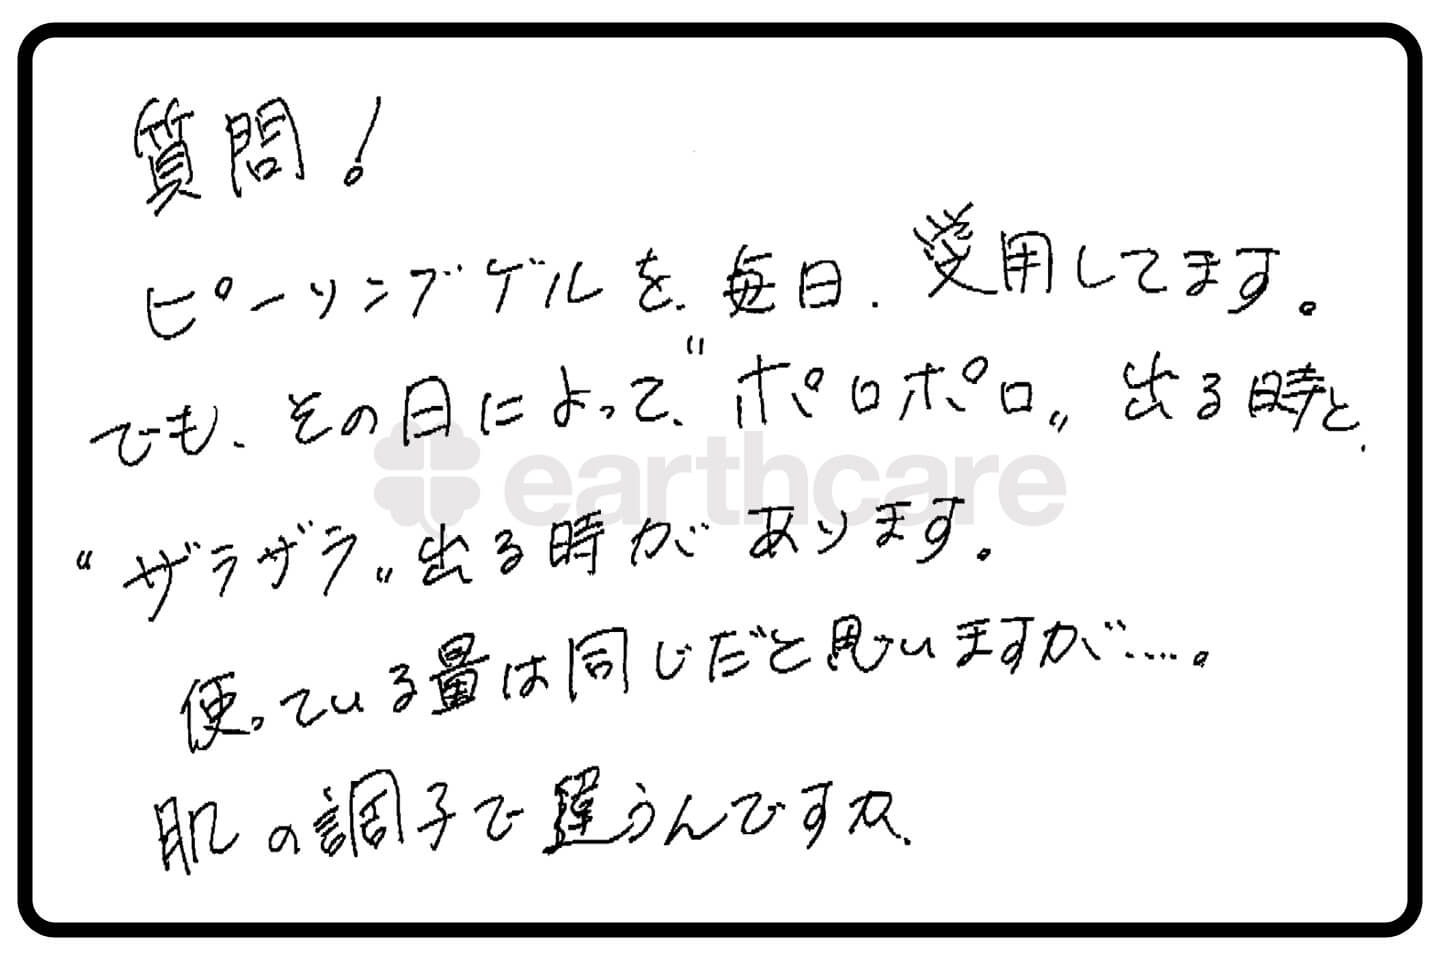 質問！
ピーリングゲルを、毎日、愛用してます。
でも、その日によって、“ポロポロ„出る時と、
earthcare
“ザラザラ„出る時があります。
使っている量は同じだと思いますが……。
肌の調子で違うんですか、